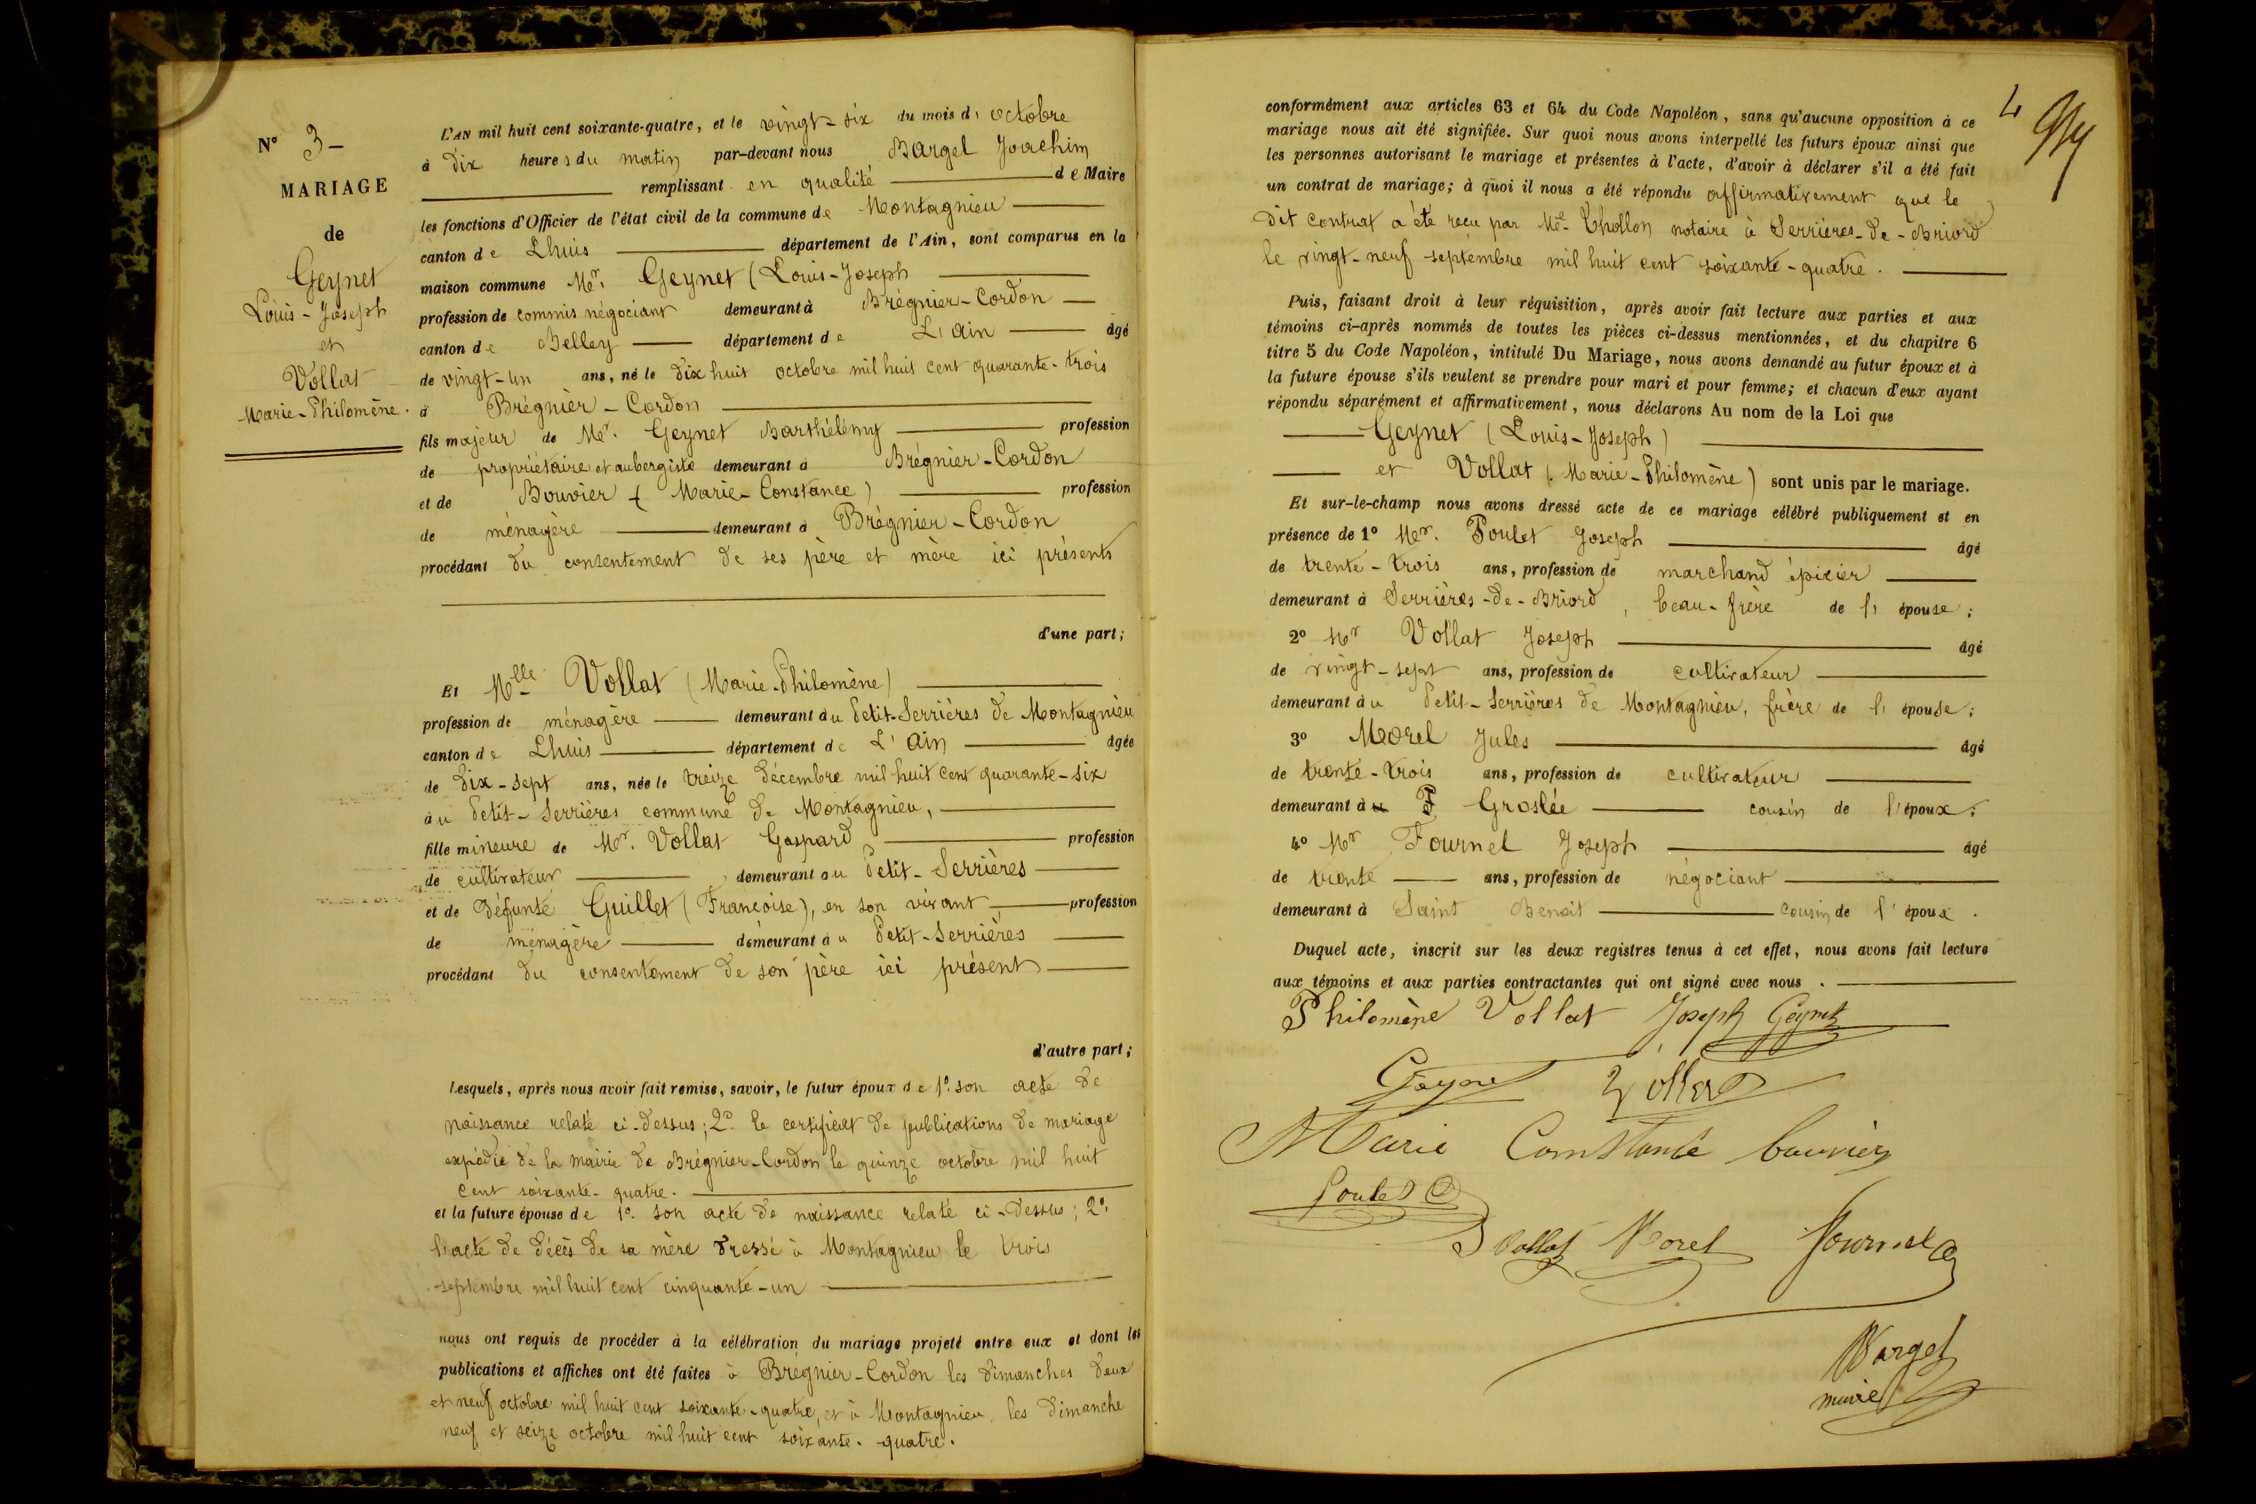 N° 3-
MARIAGE
de
Geynet
Louis-Joseph
et
Vollat
Marie-Philomène.
L'AN mil huit cent soixante-quatre, et le vingt-six du mois d' octobre
à dix heures du matin par-devant nous Bargel Joachim
remplissant en qualité de Maire
les fonctions d'Officier de l'état civil de la commune de Montagnieu
canton de Lhuis département de l'Ain, sont comparus en la
maison commune Mr. Geynet (Louis-Joseph
profession de commis négociant demeurant à Brégnier-Cordon
canton de Belley département de L'Ain âgé
de vingt-un ans, né le dix huit octobre mil huit cent quarante-trois
à Brégnier-Cordon
fils majeur de Mr. Geynet Barthélémy profession
de propriétaire et aubergiste demeurant à Brégnier-Cordon
et de Bouvier (Marie-Constance) profession
de ménagère demeurant à Brégnier-Cordon
procédant du consentement de ses père et mère ici présents
d'une part;
Et Mlle Vollat (Marie-Philomène)
profession de ménagère demeurant au Petit-Serrières de Montagnieu
canton de Lhuis département de L'Ain âgée
de dix-sept ans, née le treize décembre mil huit cent quarante-six
au Petit-Serrières commune de Montagnieu,
fille mineure de Mr. Vollat Gaspard profession
de cultivateur demeurant au Petit-Serrières
et de défunte Guillet (Françoise), en son vivant profession
de ménagère demeurant au Petit-Serrières
procédant du consentement de son père ici présent
d'autre part;
Lesquels, après nous avoir fait remise, savoir, le futur époux de 1° son acte de
naissance relaté ci-dessus; 2° le certificat de publications de mariage
expédié de la mairie de Brégnier-Cordon le quinze octobre mil huit
cent soixante-quatre.
et la future épouse de 1° son acte de naissance relaté ci-dessus; 2°
l'acte de décès de sa mère dressé à Montagnieu le trois
septembre mil huit cent cinquante-un
nous ont requis de procéder à la célébration du mariage projeté entre eux et dont les
publications et affiches ont été faites à Brégnier-Cordon les dimanches deux
et neuf octobre mil huit cent soixante-quatre, et à Montagnieu les dimanche
neuf et seize octobre mil huit cent soixante-quatre.
4
conformément aux articles 63 et 64 du Code Napoléon, sans qu'aucune opposition à ce
mariage nous ait été signifiée. Sur quoi nous avons interpellé les futurs époux ainsi que
les personnes autorisant le mariage et présentes à l'acte, d'avoir à déclarer s'il a été fait
un contrat de mariage; à quoi il nous a été répondu affirmativement que le
dit contrat a été reçu par Me Thollon notaire à Serrières-de-Briord
le vingt-neuf septembre mil huit cent soixante-quatre.
Puis, faisant droit à leur réquisition, après avoir fait lecture aux parties et aux
témoins ci-après nommés de toutes les pièces ci-dessus mentionnées, et du chapitre 6
titre 5 du Code Napoléon, intitulé Du Mariage, nous avons demandé au futur époux et à
la future épouse s'ils veulent se prendre pour mari et pour femme; et chacun d'eux ayant
répondu séparément et affirmativement, nous déclarons Au nom de la Loi que
Geynet (Louis-Joseph)
et Vollat (Marie-Philomène) sont unis par le mariage.
Et sur-le-champ nous avons dressé acte de ce mariage célébré publiquement et en
présence de 1° Mr. Poulet Joseph âgé
de trente-trois ans, profession de marchand épicier
demeurant à Serrières-de-Briord, beau-frère de l' épouse;
2° Mr Vollat Joseph âgé
de vingt-sept ans, profession de cultivateur
demeurant au Petit-Serrières de Montagnieu, frère de l' épouse;
3° Morel Jules âgé
de trente-trois ans, profession de cultivateur
demeurant à Groslée cousin de l'époux;
4° Mr Fournel Joseph âgé
de trente ans, profession de négociant
demeurant à Saint Benoit cousin de l' époux.
Duquel acte, inscrit sur les deux registres tenus à cet effet, nous avons fait lecture
aux témoins et aux parties contractantes qui ont signé avec nous.
Philomène Vollat Joseph Geynet
Geynet Vollat
Marie Constance bouvier
Poulet
J Vollat Morel Fournel
Bargel
maire